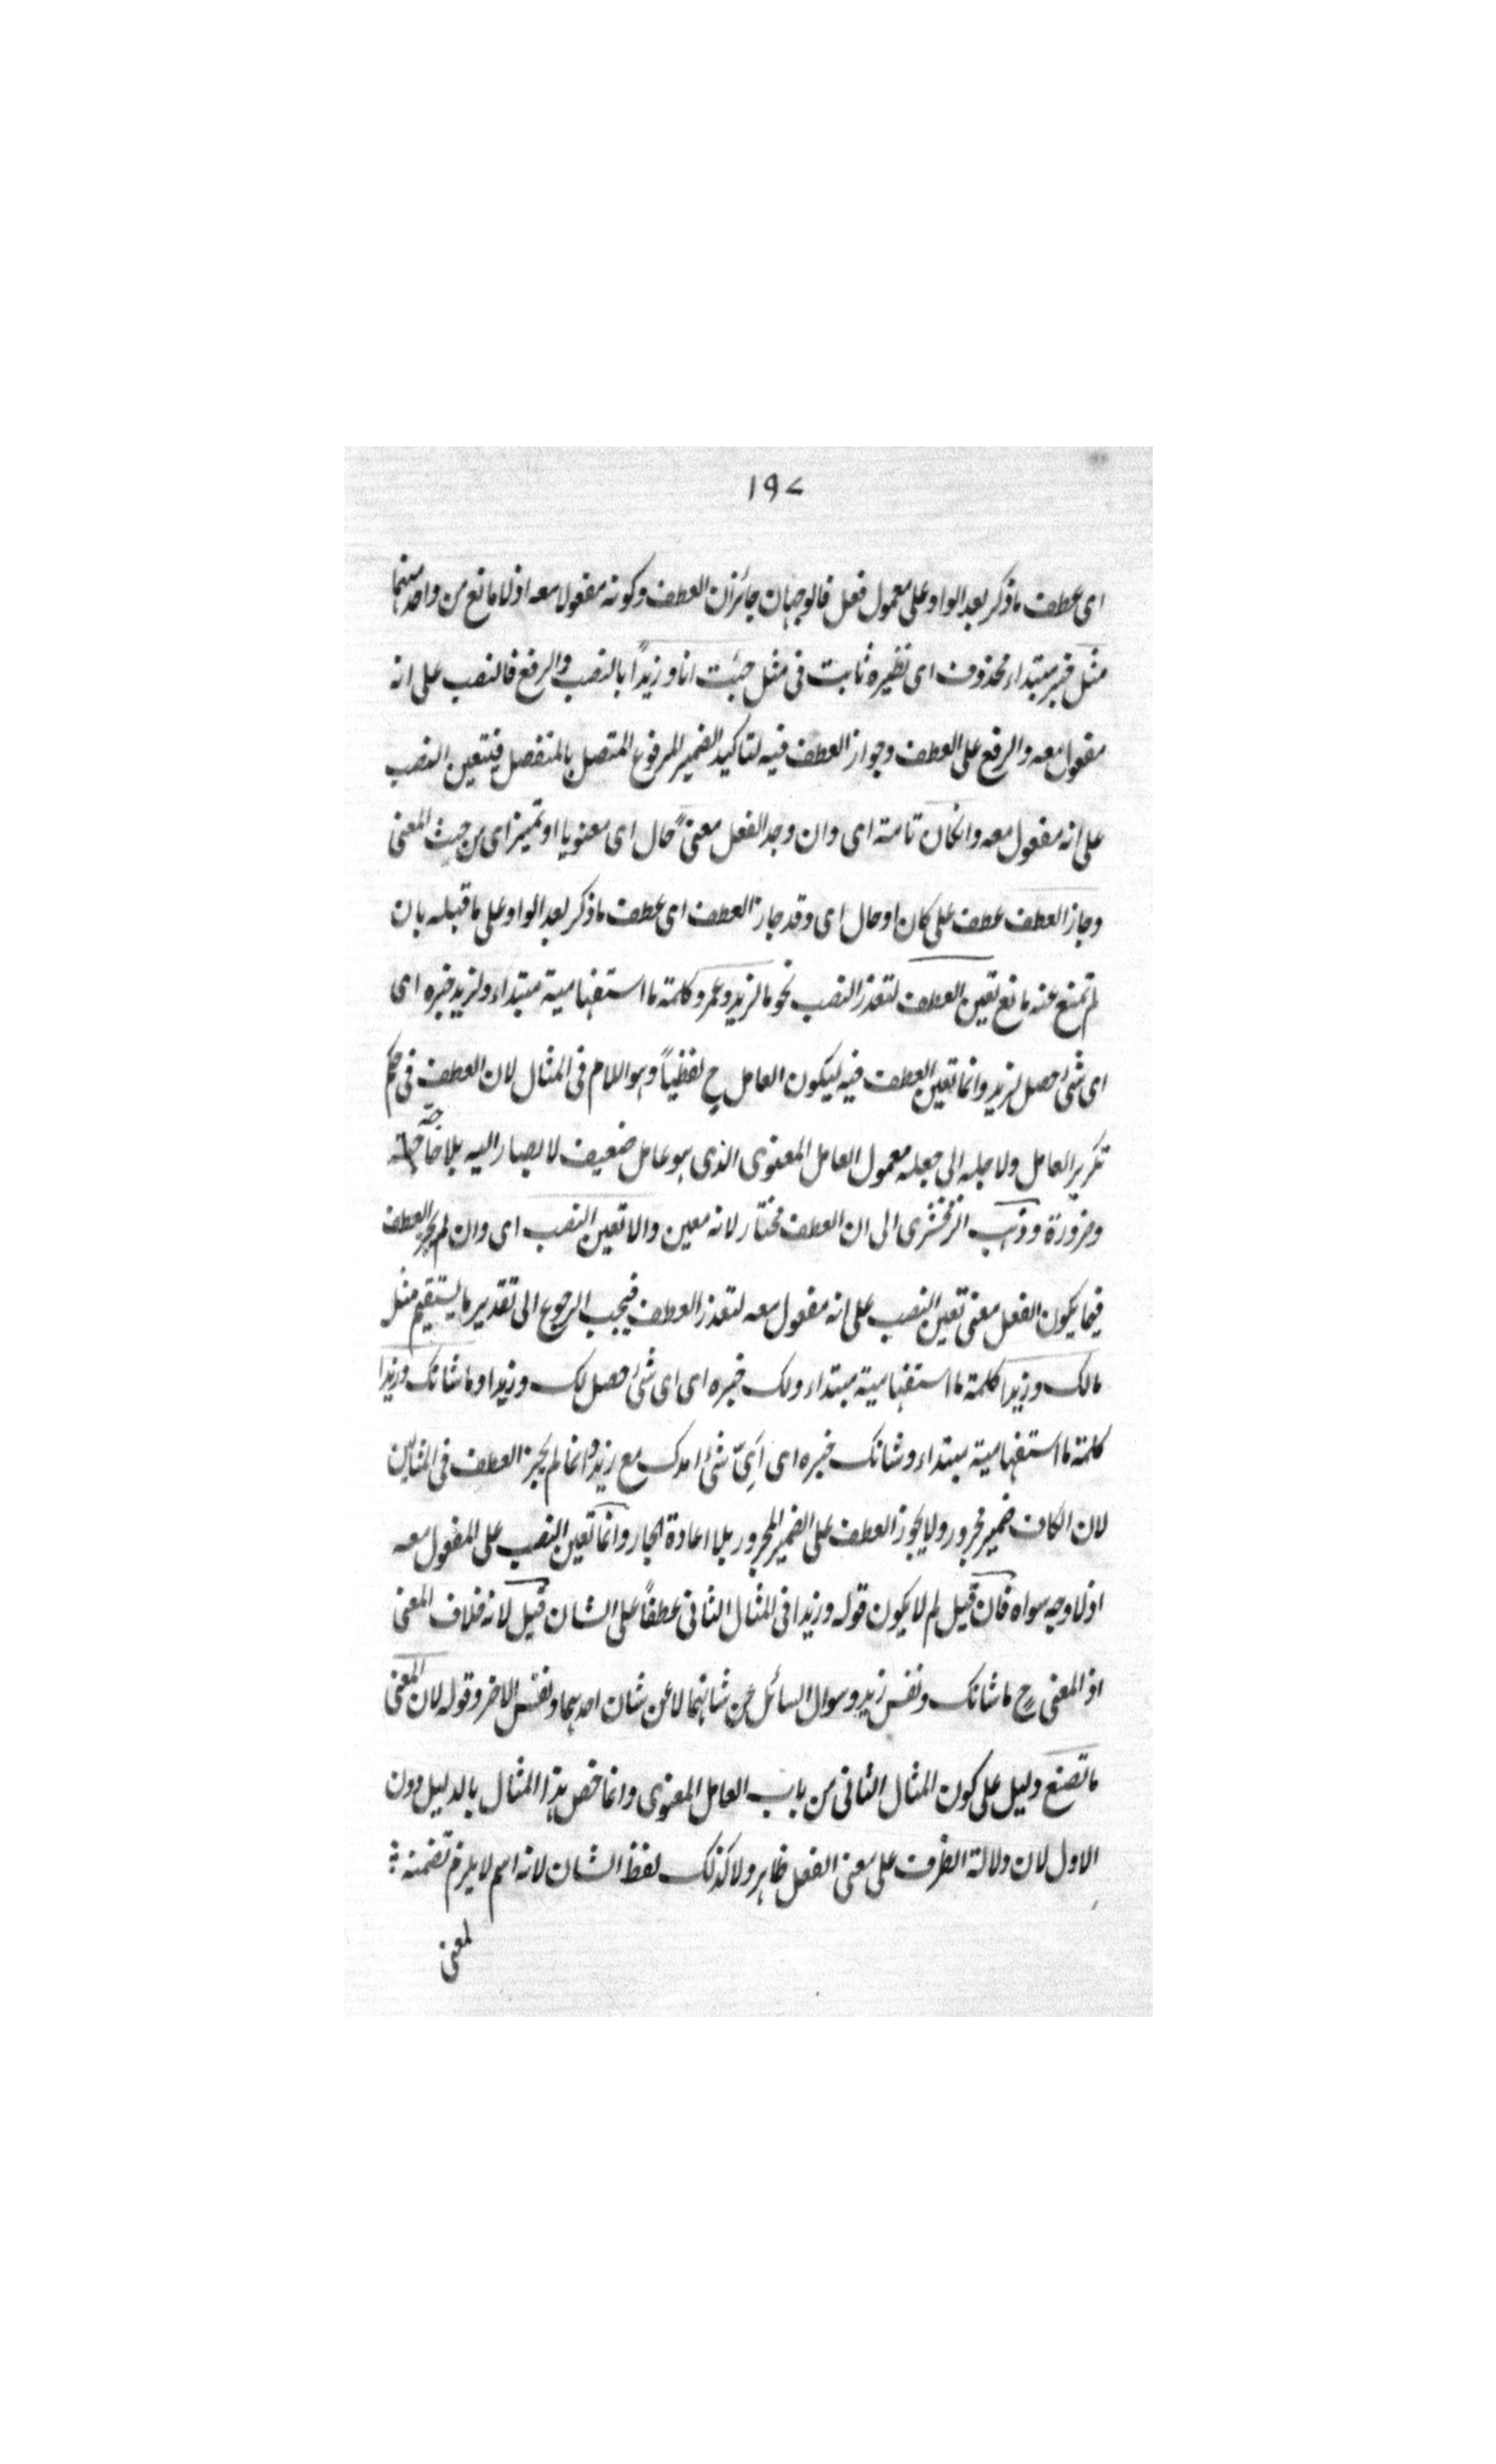 ١٩٧
اى عطف ما ذكر بعد الواو على معمول فعل فالوجهان جائزان العطف وكونه مفعولا معه اذ لا مانع من واحد منهما
مثل خبر مبتداء محذوف اى نظيره ثابت فى مثل جئت انا وزيداً بالنصب والرفع فالنصب على انه
مفعول معه والرفع على العطف وجواز العطف فيه لتاكيد الضمير المرفوع المتصل بالمنفصل فيتعين النصب
على انه مفعول معه وانكان تامة اى وان وجد الفعل معنىً حال اى معنويا او تميز اى من حيث المعنى
وجاز العطف عطف على كان او حال اى وقد جاز العطف اى عطف ما ذكر بعد الواو على ما قبله بان
لم تمنع عنه مانع تعين العطف لتعذر النصب نحو ما لزيد وعمرو كلمة ما استفهامية مبتداء ولزيد خبره اى
اى شئ حصل لزيد وانما تعين العطف فيه ليكون العامل ح لفظياً وهو اللام فى المثال لان العطف فى حكم
تكرير العامل ولا جله الى جعله معمول العامل المعنوى الذى هو عامل ضعيف لا يصار اليه بلا حاجة
وضرورة وذهب الزمخشرى الى ان العطف مختار لانه معين والا تعين النصب اى وان لم يجز العطف
فيما يكون الفعل معنى تعين النصب على انه مفعول معه لتعذر العطف فيجب الرجوع الى تقدير ما يستقيم مثل
مالك وزيدا كلمة ما استفهامية مبتداء ولك خبره اى اى شئ حصل لك وزيدا وما شانك وزيدا
كلمة ما استفهامية مبتداء وشانك خبره اى اَىّ شئ امرك مع زيد وانما لم يجز العطف فى المثالين
لان الكاف ضمير مجرور ولا يجوز العطف على الضمير المجرور بلا اعادة الجار وانما تعين النصب على المفعول معه
اذ لا وجه سواه فان قيل لم لا يكون قوله وزيدا فى المثال الثانى عطفاً على الشان قيل لانه خلاف المعنى
اذ المعنى ح ما شانك ونفس زيد وسوال السائل عن شانهما لا عن شان احدهما ونفس الاخر وقوله لان المعنى
ما تصنع دليل على كون المثال الثانى من باب العامل المعنوى وانما خص هذا المثال بالدليل دون
الاول لان دلالة الظرف على معنى الفعل ظاهر ولا كذلك لفظ الشان لانه اسم لا يلزم تضمنه
لمعنى